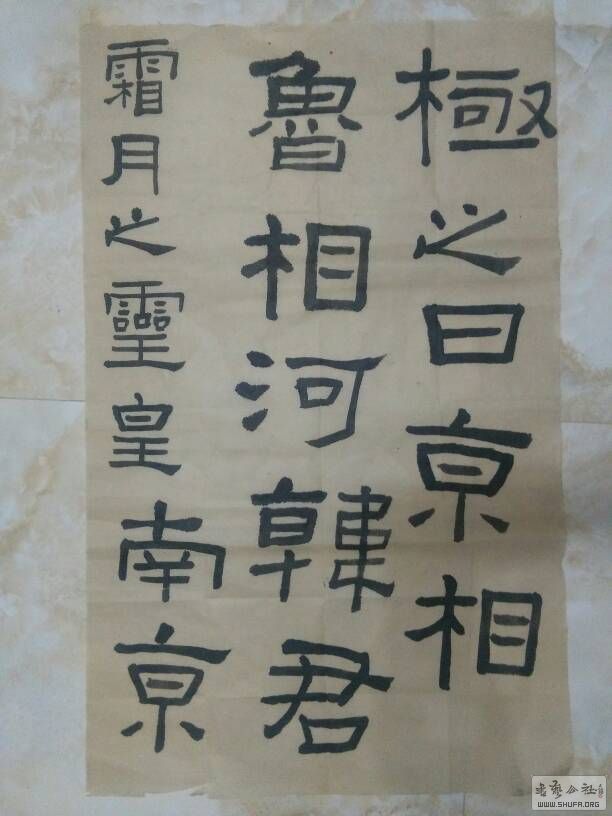 極之日京相
魯相河韓君
霜月之靈皇南京
书艺公社
WWW.SHUFA.ORG